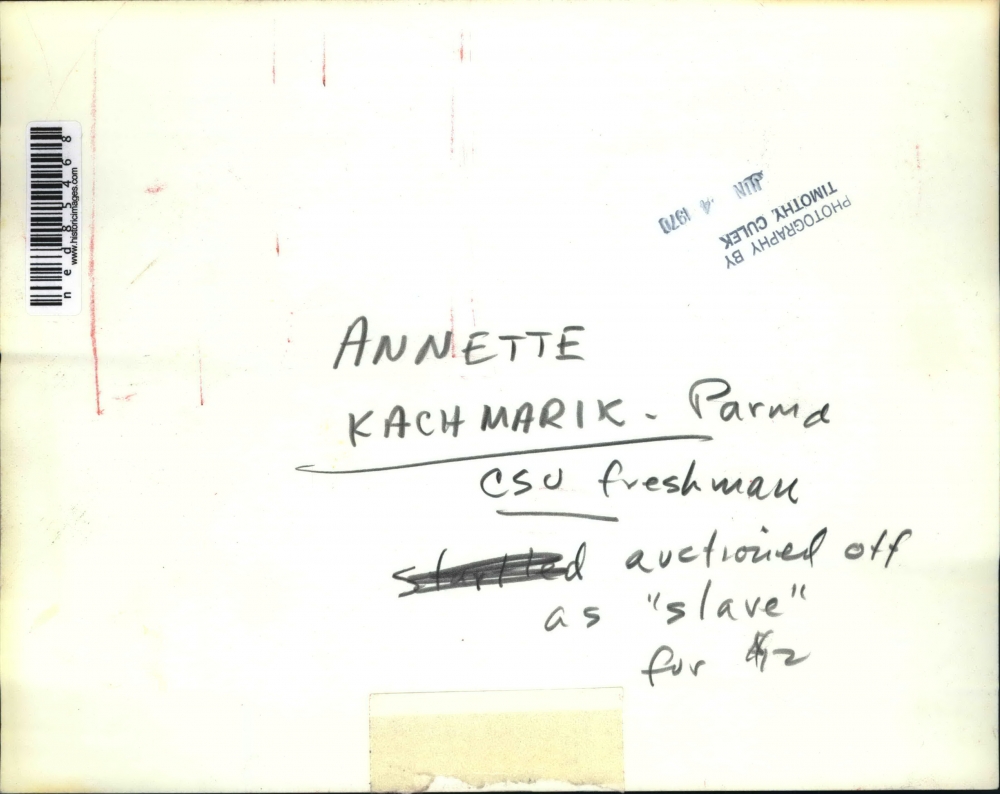 ned85468
www.historicimages.com
JUN 4 1970
PHOTOGRAPHY BY
TIMOTHY CULEK
ANNETTE
KACHMARIK - Parma
CSU freshman
startled auctioned off
as "slave"
for $12